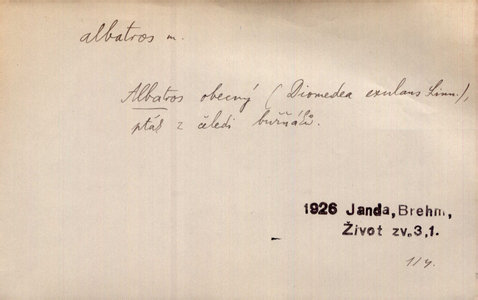 albatros m.
Albatros obecný (Diomedea exulans Linn.),
pták z čeledi buřňáků.
1926 Janda, Brehm,
Život zv. 3,1.